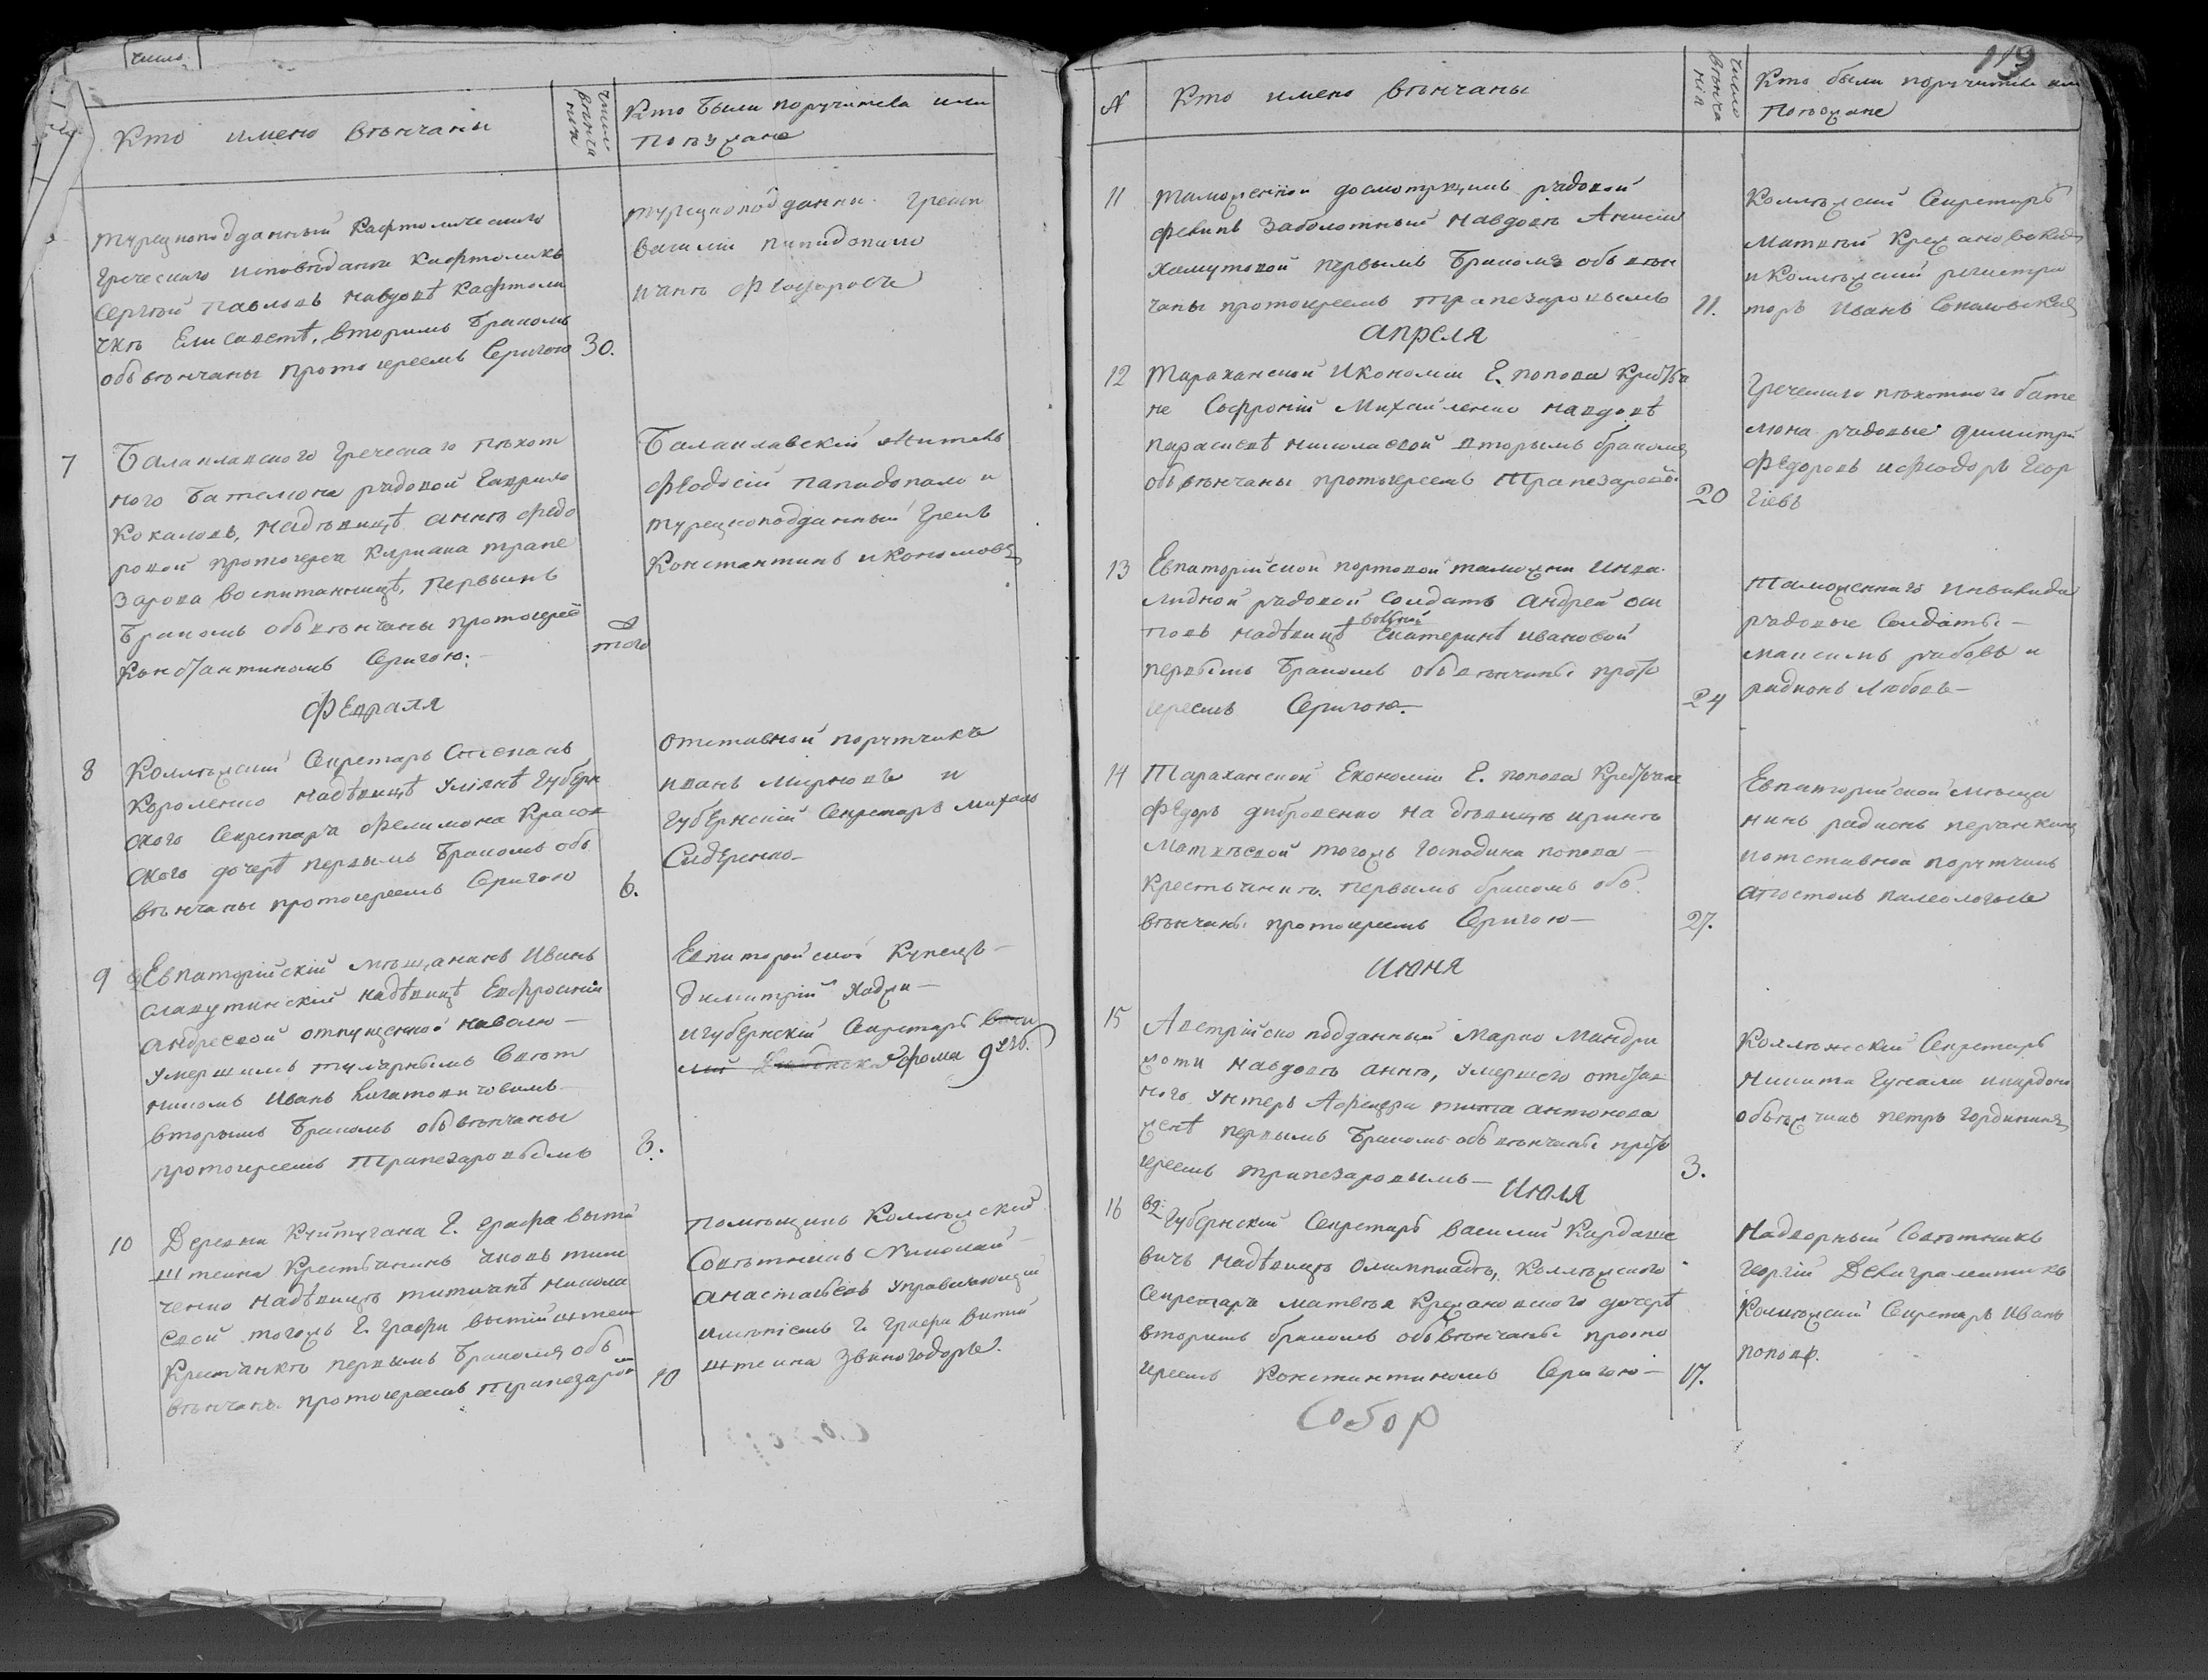 число
Кто имено вѣнчаны
число вѣнчания
Кто были поручитела или
Поезжане
турецкоподданный Кафтолического
Греческаго исповѣдания Кафтоликъ
Сергѣй Павловъ навдовѣ Кафтоли
чкѣ Елисаветѣ, вторимъ бракомъ
обвѣнчаны протоиереемъ Серигою
30.
турецкоподданни Греки
Василий Пападопало
иванъ Фіодоровъ
7
Балаклавского Греческаго пѣхот
ного баталиона радовой Гаврило
Кокаловъ, надѣвицѣ аннѣ Федо
ровой протоиерея Кириака трапе
зарова воспитанницѣ, первымъ
бракомъ обвѣнчаны протоиерее
Константиномъ Серигою.
того
Балаклавскій житель
Феодосій Пападопало и
турецкоподданный Грекъ
Константинъ икономовъ
Февраля
8
Коллежский Секретаръ Степанъ
Короленко надѣвицѣ Улиянѣ Губерн
ского Секретаря Филимона Красов
ского дочерѣ первымъ бракомъ об
вѣнчаны протоиереемъ Серигою
6.
отставной поручикъ
иванъ Мирковъ и
Губернский Секретаръ Михаилъ
Сидеренко
9
Евпаторійскій мѣщанинъ Иванъ
Славутинскій надѣвицѣ Евфросиніи
андреевой отпущенной
умершимъ титулярнымъ Совѣт
никомъ Иванъ Богатовичовимъ
вторымъ бракомъ обвѣнчаны
протоиереемъ Трапезаровымъ
8.
Евпаторийской Купецъ
Димитрий Хаджи
игубернский Секретаръ Васи
лий Ефома
10
Деревни Куйтугана Г. Графа Витген
штеина Крестьянинъ Яковъ Тим
ченко надѣвицѣ татиянѣ Никола
евой тогожъ Г. Графа
Крестянкѣ первымъ бракомъ об
вѣнчаны протоиереемъ Трапезаров
10
Помѣщикъ Коллежский
Совѣтникъ Николай
анастасьевъ управляющий
имѣниемъ Г. Графа Витген
штеина Звеногодоръ.
119
N
Кто имено вѣнчаны
число вѣнчания
Кто были поручитель или
Поезжане
11
таможенной досмотрщикъ радовой
Заболотный навдовѣ Анисии
Хомутовой первымъ бракомъ обвѣн
чаны протоиереемъ Трапезаровымъ
11.
Коллежский Секретаръ
Матвей Кржановский
и Коллежский регистра
торъ Иванъ
апреля
12
Тарханской Икономии Г. попова Крестья
не Сафроний Михайленко навдовѣ
параскевѣ николаевой вторымъ бракомъ
обвѣнчаны протоиереемъ Трапезаров
20
Греческаго пѣхотного бата
лиона радовые Димитрий
Федоровъ иФиодоръ Геор
гіевъ
13
Евпаторийской портовой таможни Инва
лидной радовой Солдатъ андрей оси
повъ надѣвицѣ Екатеринѣ ивановой
первымъ бракомъ обвѣнчаны прото
иереемъ Серигою.
24
Таможенного инвалида
радовые Солдаты
максимъ рабовъ и
радионъ Любовъ
14
Тараханской Економии Г. попова Крестьяне
Федоръ дибровенко на дѣвицѣ иринѣ
Матвѣевой тогожъ Господина попова
Крестьянинѣ. первымъ бракомъ об
вѣнчаны протоиереемъ Серигою
27.
Евпаторийской мѣща
нинъ радионъ
иотставной поручикъ
апостолъ палеологовъ
июня
15
Австрійско подданный Марко Мандри
жоти навдовѣ аннѣ, умершего отстав
ного унтеръ Афицера тита антонова
женѣ первымъ бракомъ обвѣнчаны прото
иереемъ трапезаровымъ
3.
Коллежский Секретаръ
Никита Гункали
объѣжчикъ петръ Гординин
Июля
16
Губернский Секретаръ василий Кардаше
вичъ надѣвицѣ олимпиадѣ, Коллежского
Секретаря матвѣя Кржановского дочерѣ
вторимъ бракомъ обвѣнчаны прото
иереемъ Константиномъ Серигою
17.
Надворный Совѣтникъ
Георгий Девиграматикъ
Коллежский Секретаръ Иванъ
поповъ.
Собор